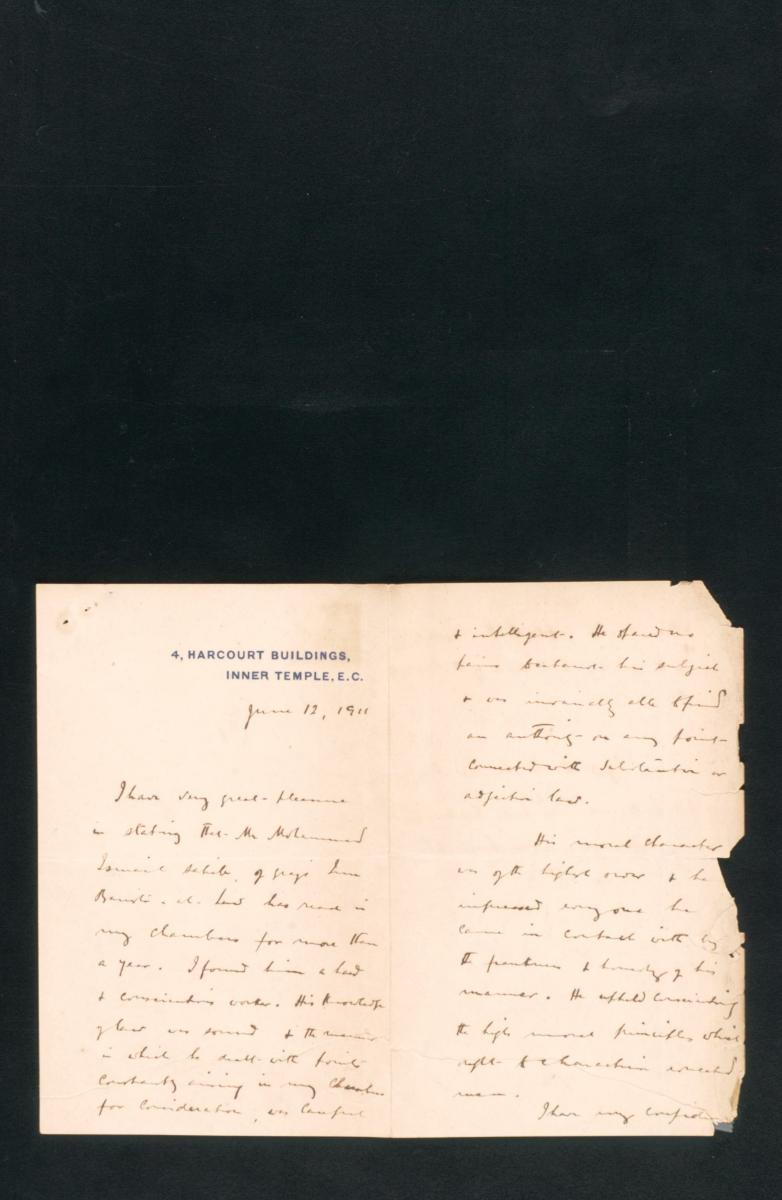 4, HARCOURT BUILDINGS,
INNER TEMPLE, E.C.
June 12, 1911
I have very great pleasure
in stating that Mr Mohammad
Ismail Sahib, of Grays Inn
Barrist. at. Law has read in
my chambers for more than
a year. I found him a hard
& conscientious worker. His knowledge
of law was sound & the manner
in which he dealt with points
constantly arising in my Chambers
for consideration, was careful
& intelligent. He spared no
pains to his subject
& was invariably able to find
an authority on any point
connected with substantive or
adjective law.
His moral character
was of the highest order & he
impressed everyone he
came in contact with by
the frankness & honesty of his
manner. He upheld
the high moral principles which
ought to characterise
man.
I have my